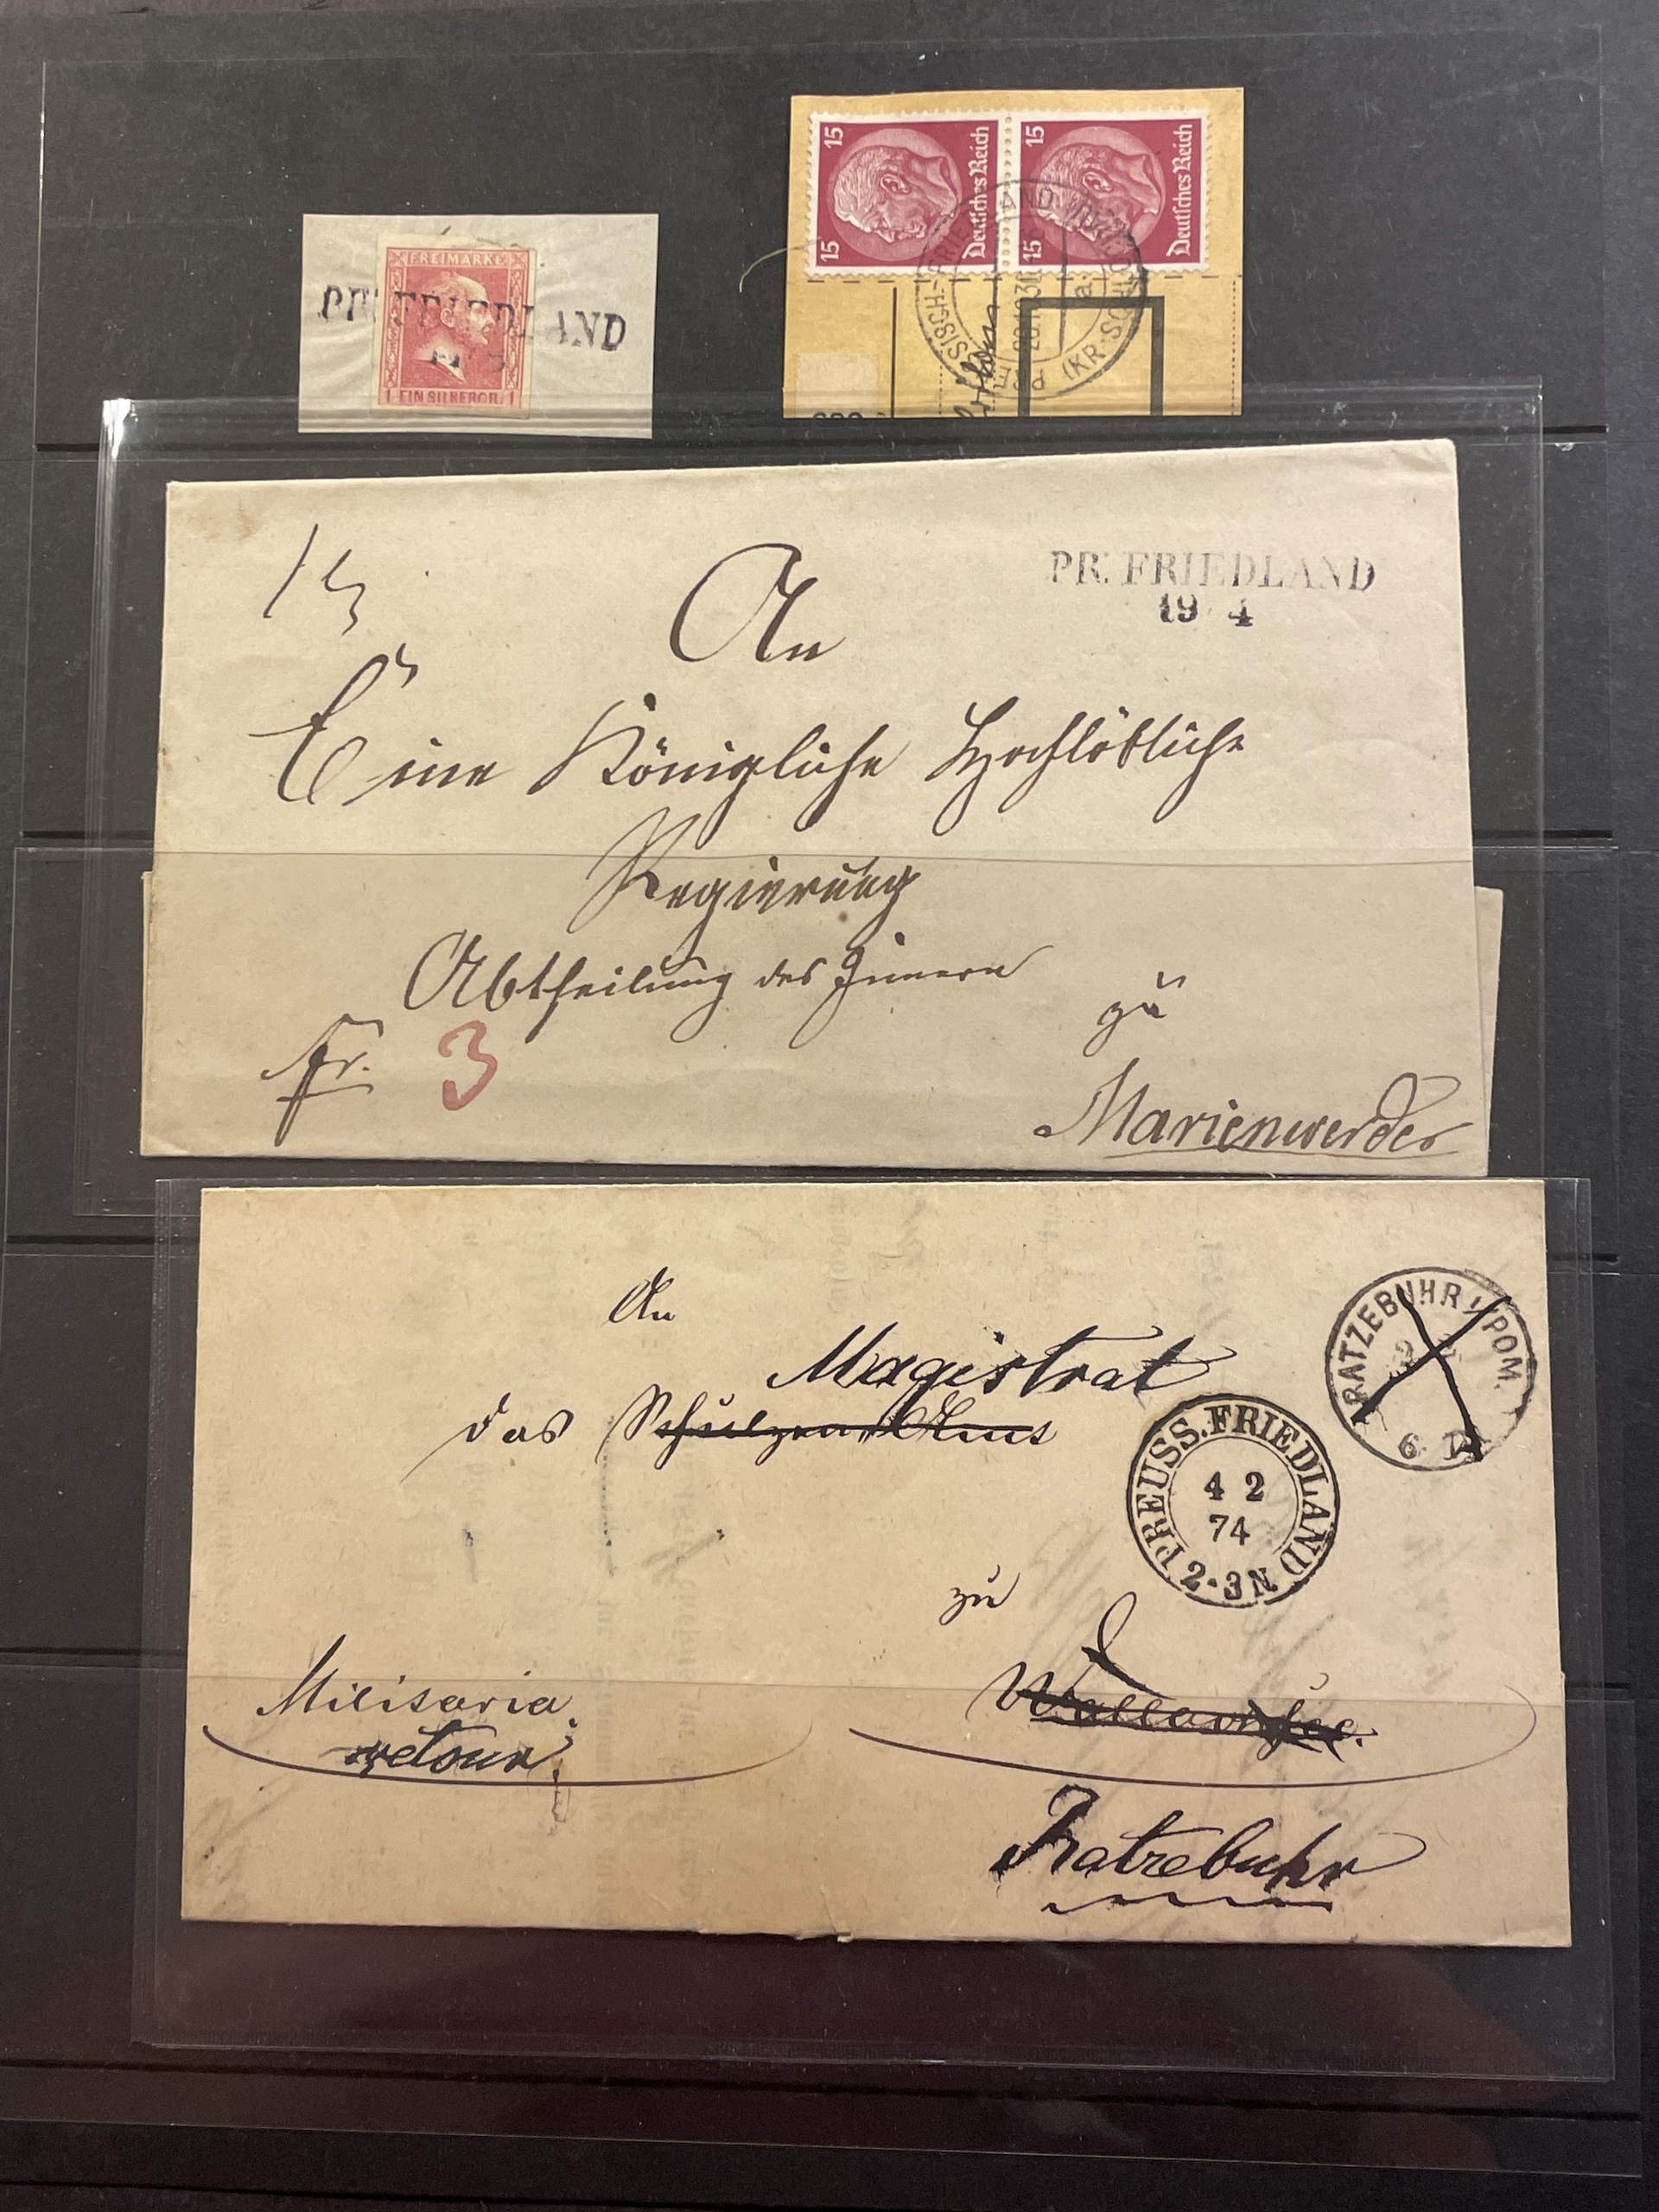 FREIMARKE
PR. FRIEDLAND
1 EIN SILBERGR. 1
15 15
Deutsches Reich
15 15
Deutsches Reich
An
PR. FRIEDLAND
19 4
Eine Königliche Hochlöbliche
Regierung
Abtheilung des Innern
zu
fr. 3
Marienwerder
An
Magistrat
das Schulzen Amt
RATZEBUHR I/POM.
PREUSS. FRIEDLAND
4 2
74
2-3 N.
zu
Militaria
retour.
Ratzebuhr